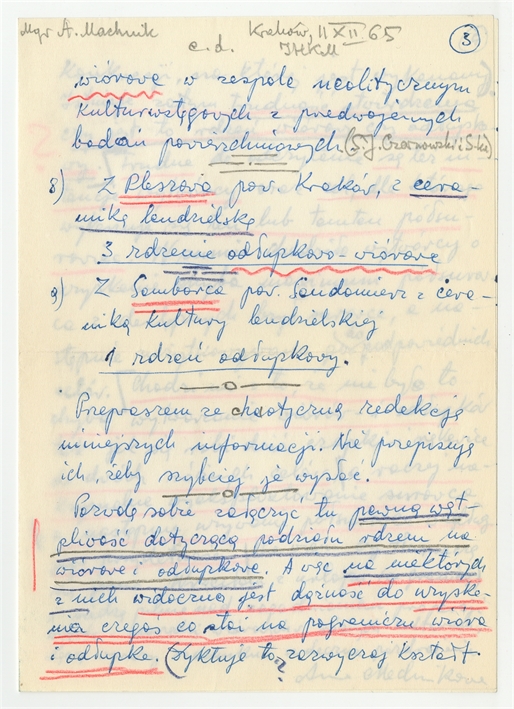 Mgr A. Machnik
Kraków, 11 XII 65
c.d. IHKM
3
wiórowe w zespole neolitycznym
kultur wstęgowych z przedwojennych
badań powierzchniowych. (S. J. Czarnowski i S-ka)
8) Z Pleszowa pow. Kraków, z cera-
miką lendzielską
3 rdzenie odłupkowo-wiórowe
9) Z Samborca pow. Sandomierz z cera-
miką kultury lendzielskiej
1 rdzeń odłupkowy.
Przepraszam za chaotyczną redakcję
niniejszych informacji. Nie przepisuję
ich, żeby szybciej je wysłać.
Pozwolę sobie załączyć tu pewną wąt-
pliwość dotyczącą podziału rdzeni na
wiórowe i odłupkowe. A więc na niektórych
z nich widoczna jest dążność do uzyska-
nia czegoś co stoi na pograniczu wióra
i odłupka. (Dyktuje to zazwyczaj kształt
?